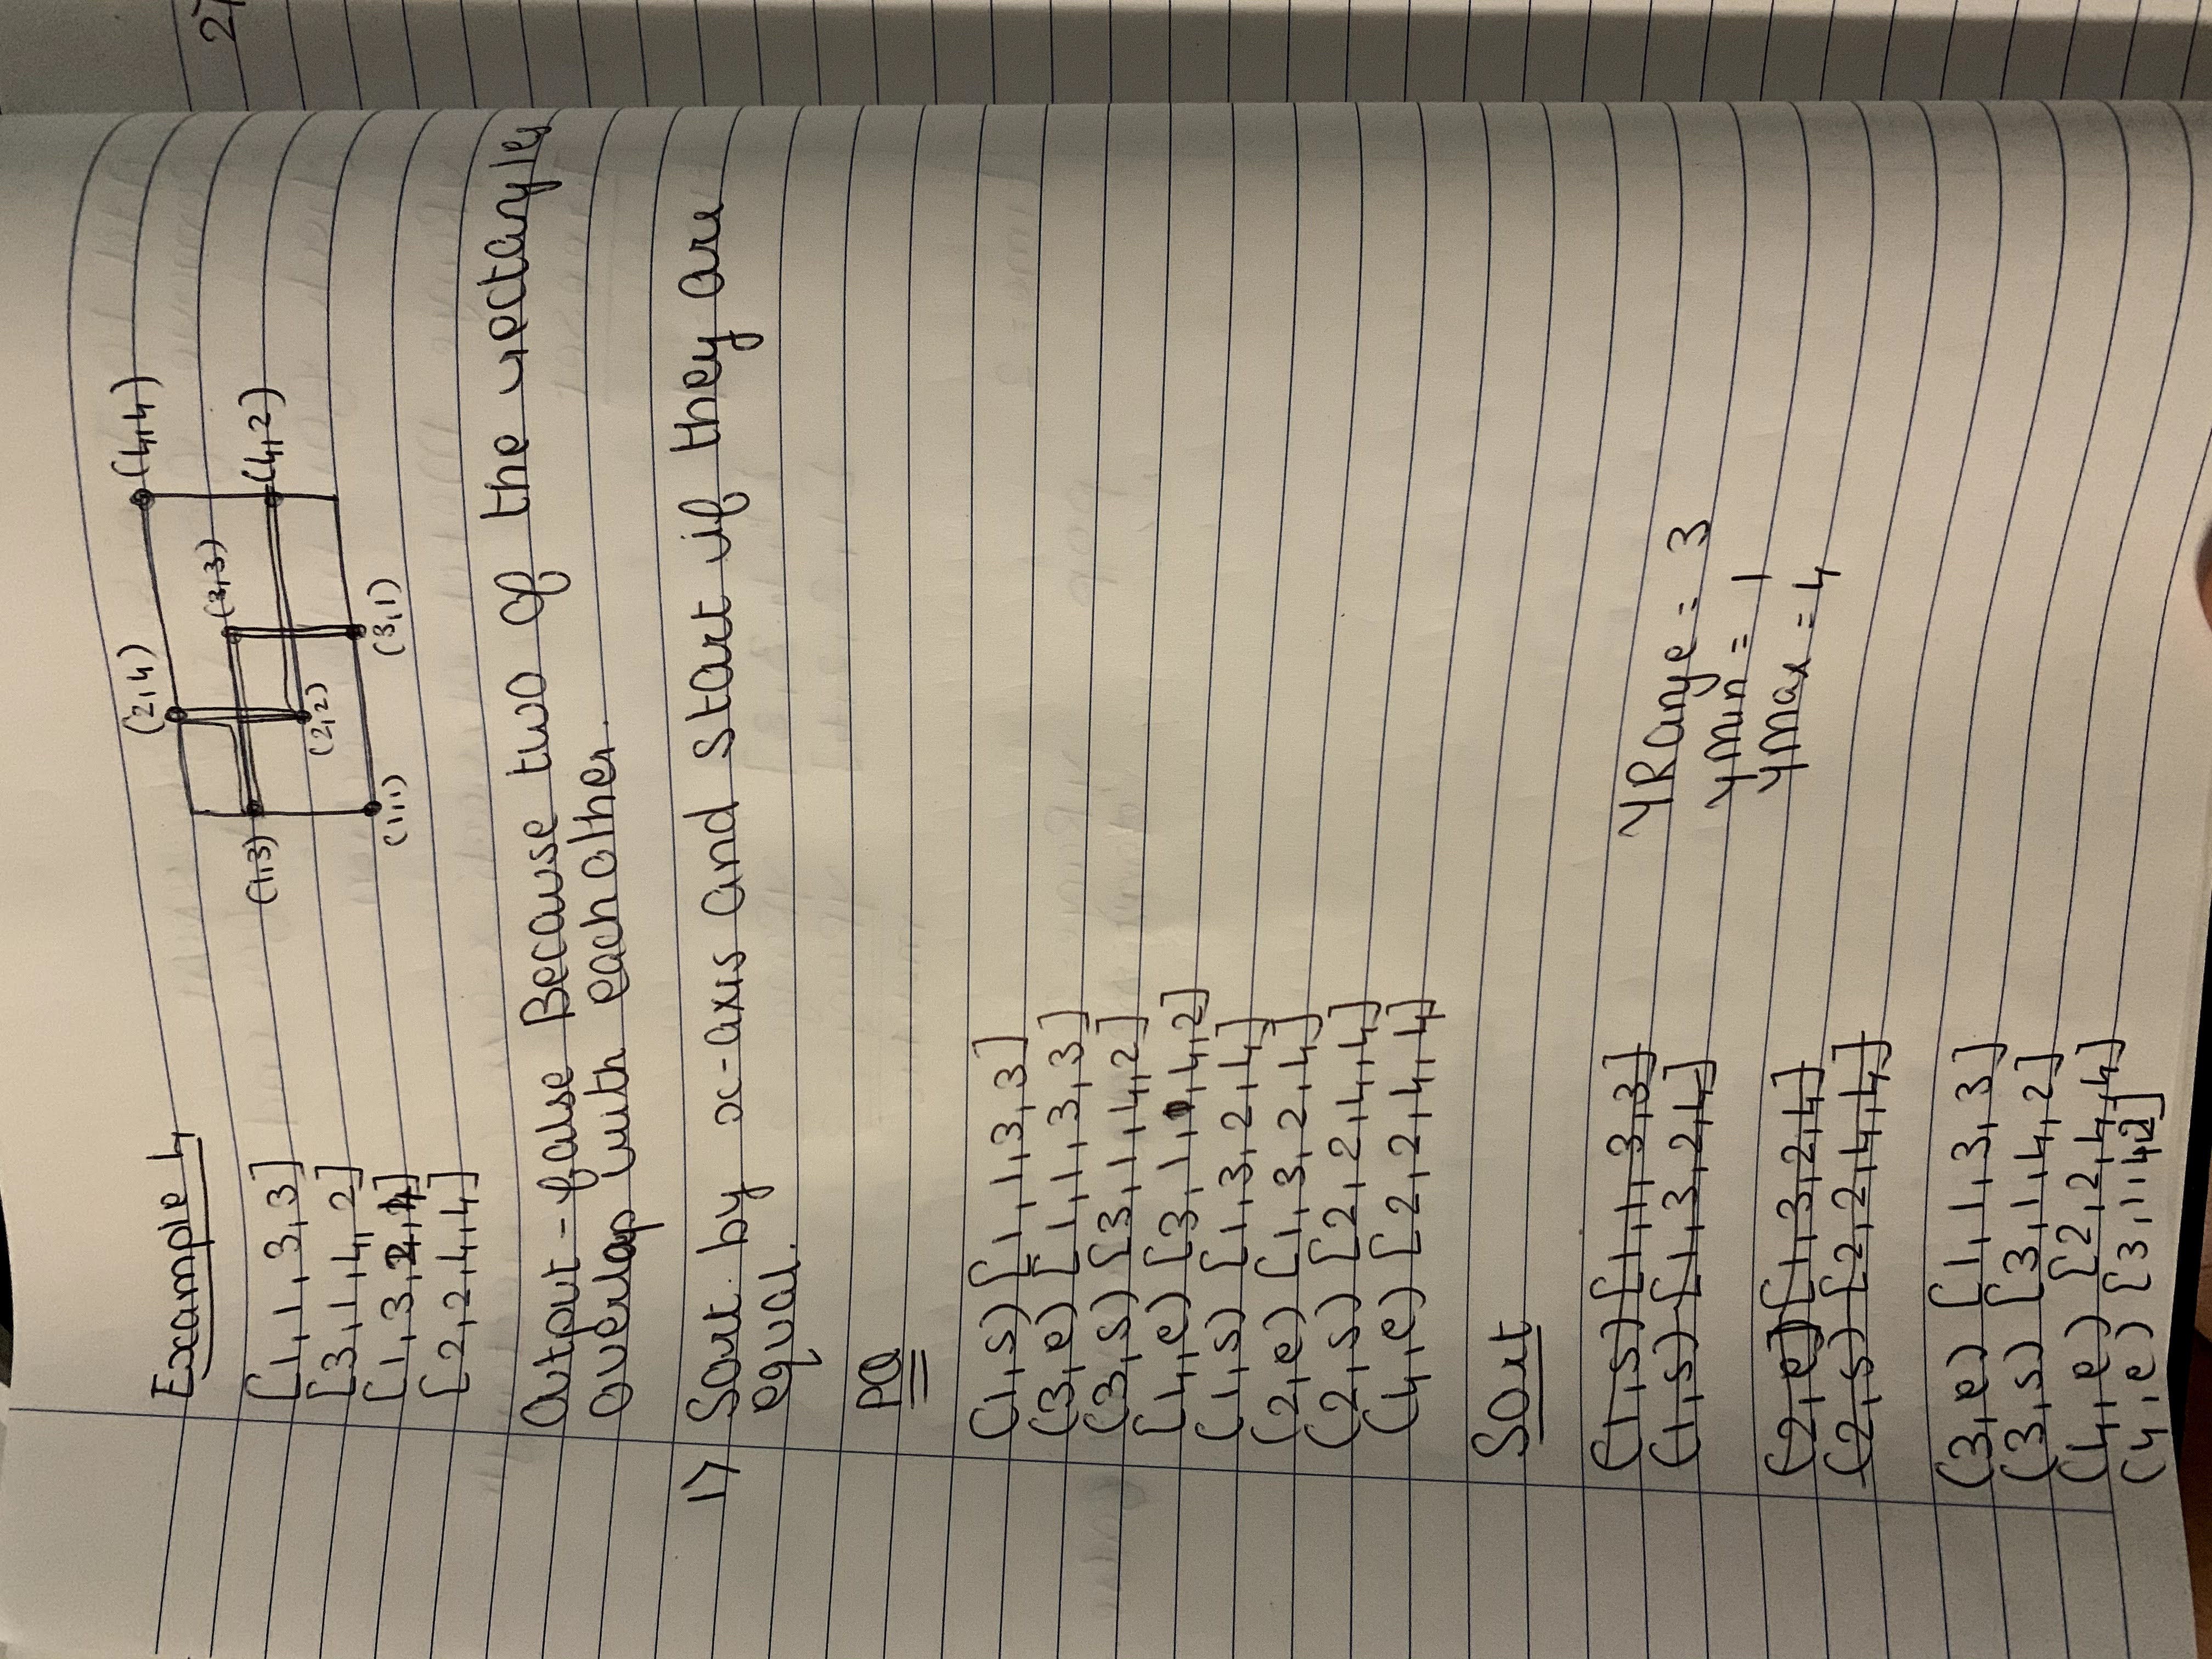 Example 4
[1,1,3,3]
[3,1,4,2]
[1,3,2,4]
[2,2,4,4]
(4,4)
(2,4)
(3,3)
(1,3)
(4,2)
(2,2)
(3,1)
(1,1)
Output - false Because two of the rectangles
overlap with each other.
1) Sort by x-axis and start if they are
equal.
PQ
(1,s) [1,1,3,3]
(3,e) [1,1,3,3]
(3,s) [3,1,4,2]
(4,e) [3,1,4,2]
(1,s) [1,3,2,4]
(2,e) [1,3,2,4]
(2,s) [2,2,4,4]
(4,e) [2,2,4,4]
Sort
(1,s) [1,1,3,3]
(1,s) [1,3,2,4]
(2,e) [1,3,2,4]
(2,s) [2,2,4,4]
YRange = 3
ymin = 1
ymax = 4
(3,e) [1,1,3,3]
(3,s) [3,1,4,2]
(4,e) [2,2,4,4]
(4,e) [3,1,4,2]